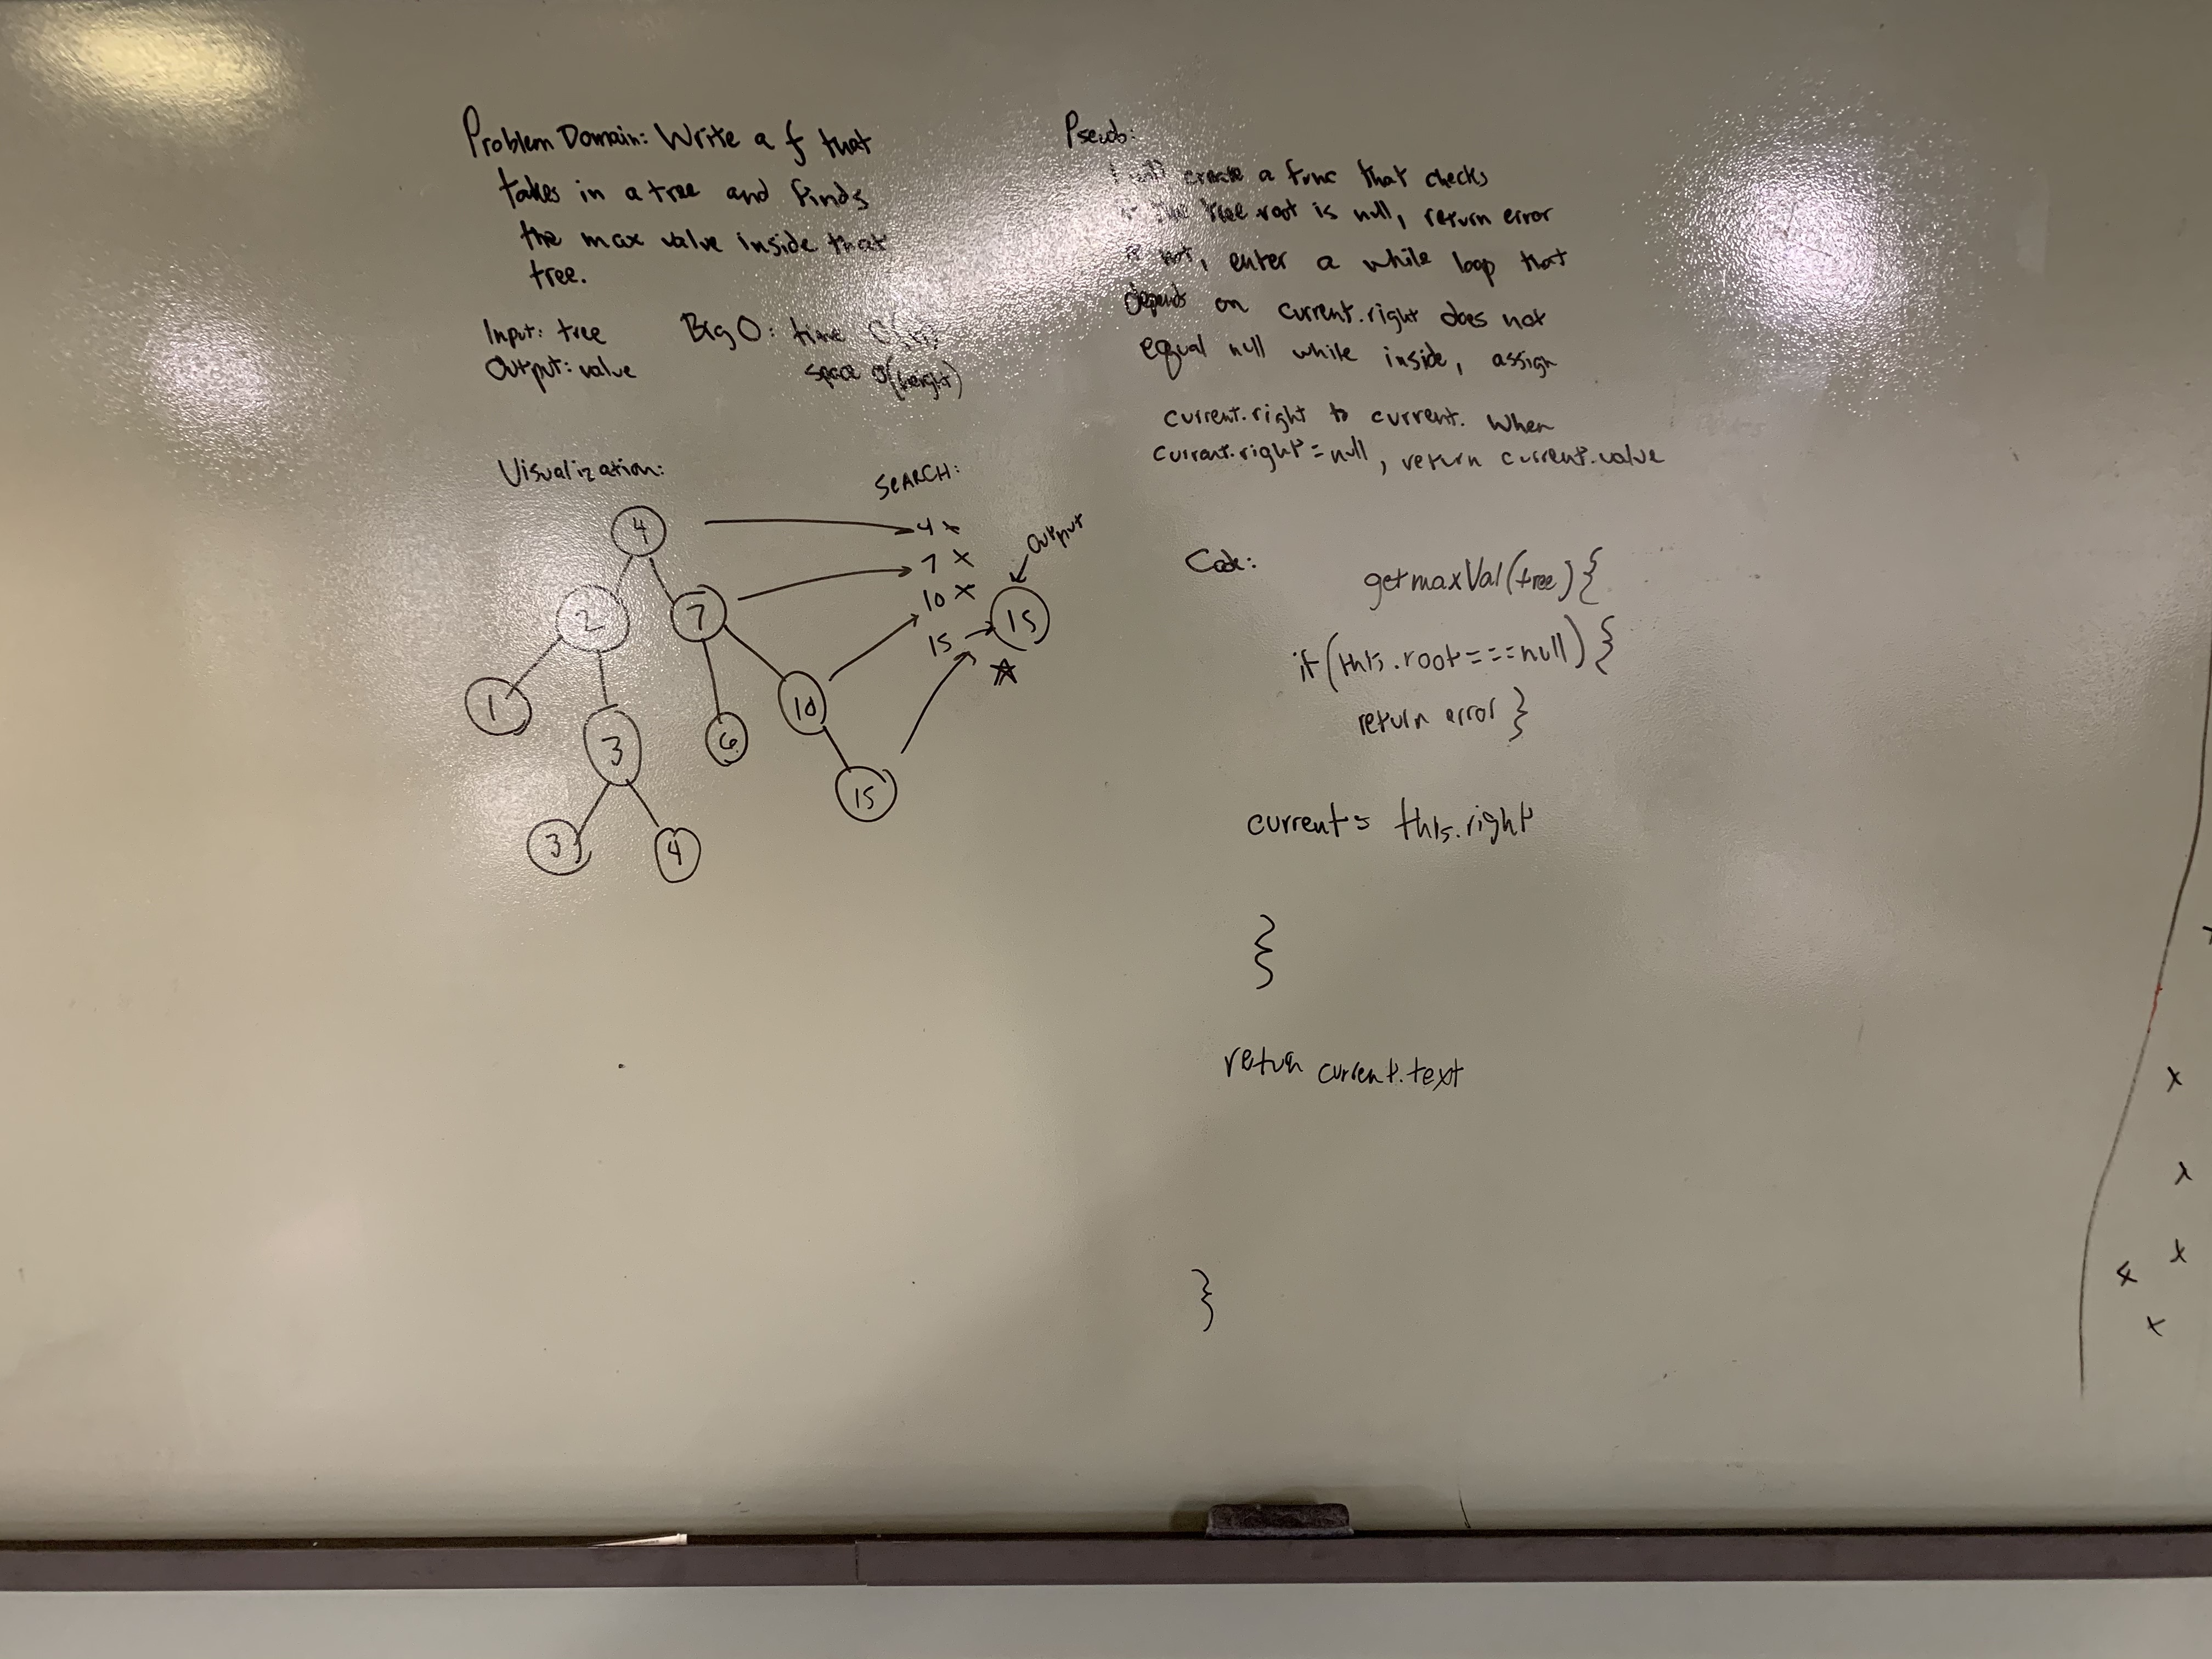 Problem Domain: Write a f that
takes in a tree and finds
the max value inside that
tree.
Input: tree
Output: value
Big O: time
space O(height)
Visualization:
4
2
7
1
3
6
10
3
4
15
SEARCH:
4 x
7 x
10 x
15
15
Output
Pseudo:
create a func that checks
tree.root is null, return error
if not, enter a while loop that
depends on current.right does not
equal null while inside, assign
current.right to current. When
current.right = null, return current.value
Code:
getmaxVal(tree){
if(this.root===null){
return error }
current = this.right
}
return current.text
}
x
x
x
x
x